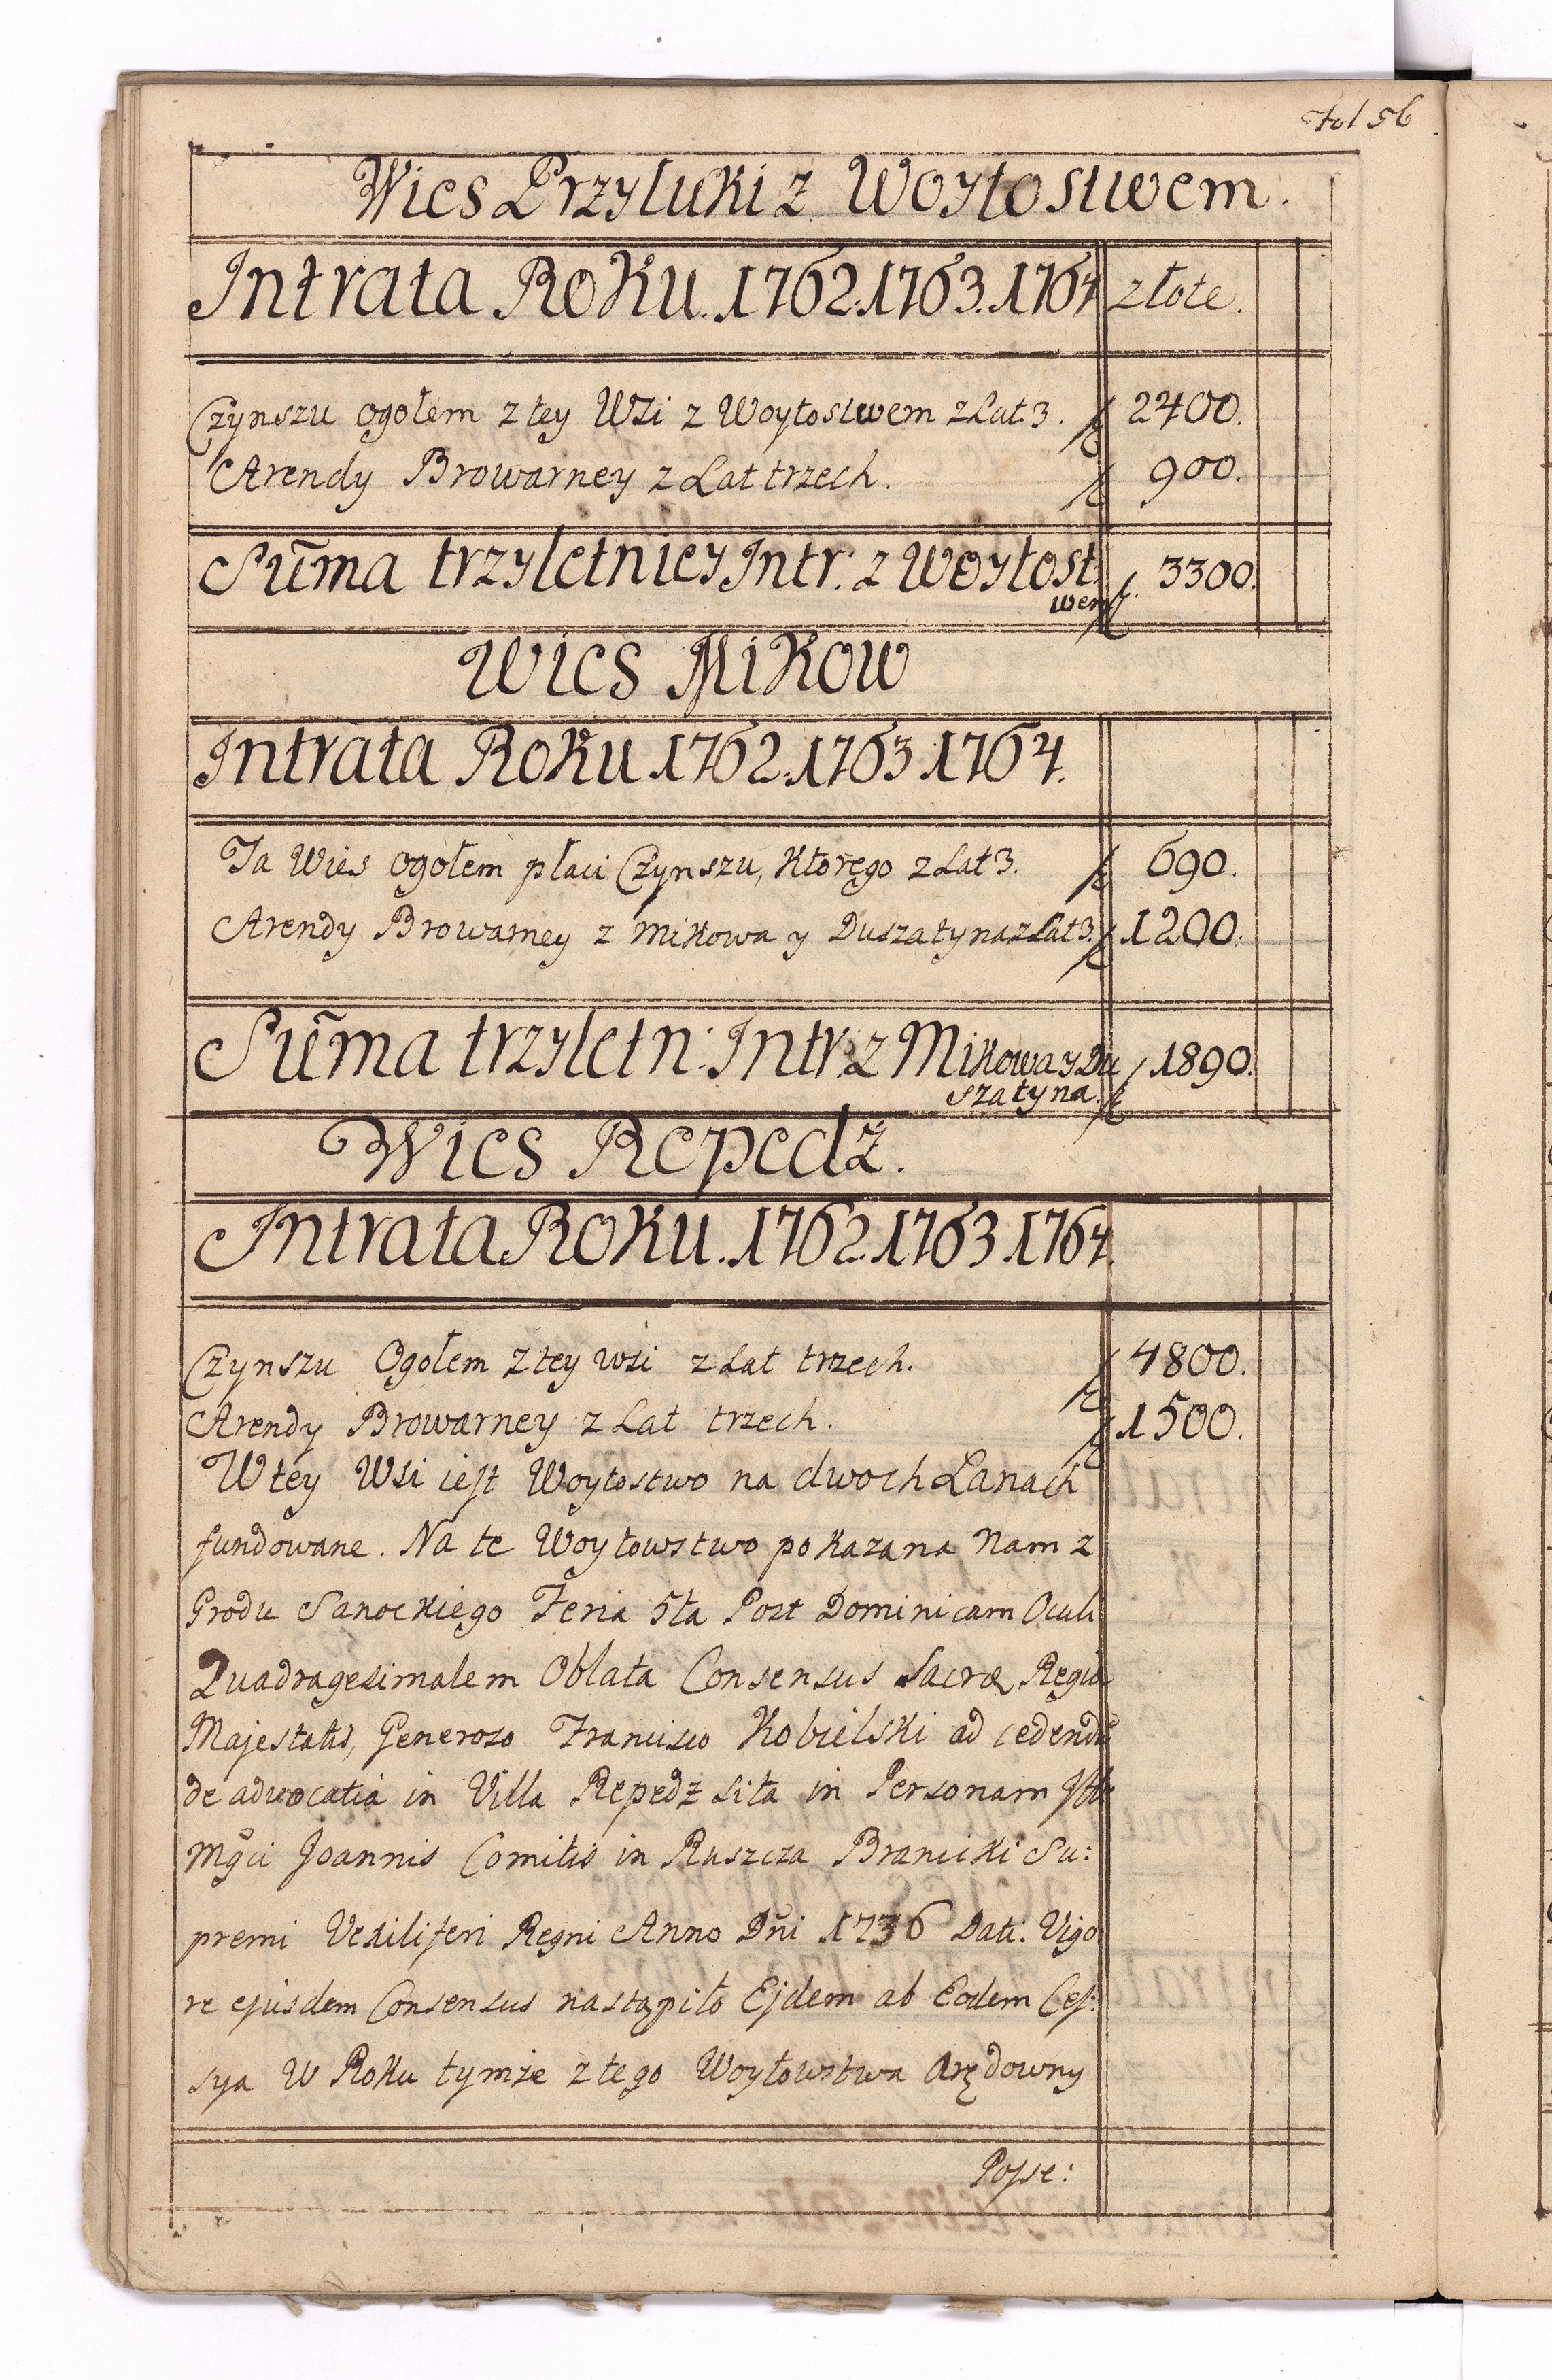 Fol 56
Wies Przyluki z Woytostwem.
Intrata Roku. 1762. 1763. 1764 złote.
Czynszu ogołem z tey Wsi z Woytostwem z Lat. 3. f 2400.
Arendy Browarney z Lat trzech. f 900.
Sum̃a trzyletniey Intr: z Woytost
wem f. 3300.
Wies Mikow
Intrata Roku 1762. 1763 1764.
Ta Wies ogołem płaci Czynszu, ktorego z Lat 3. f 690.
Arendy Browarney z Mikowa y Duszatyna z Lat 3. f 1200.
Sum̃a trzyletn: Intr: z Mikowa y Du
szatyna. f 1890.
Wies Repedz.
Intrata Roku. 1762. 1763. 1764.
Czynszu Ogołem z tey wsi z Lat trzech. f 4800.
Arendy Browarney z Lat trzech. f 1500.
W tey Wsi iest Woytostwo na dwoch Lanach
fundowane. Na te Woytowstwo pokazana Nam z
Grodu Sanockiego Feria 5ta Post Dominicam Oculi
Quadragesimalem Oblata Consensus Sacræ Regiæ
Majestatis, Generoso Francisco Kobielski ad cedendũ
de advocatia in Villa Repedz sita in Personam
Mgci Joannis Comitis in Ruszcza Branicki Su:
premi Vexiliferi Regni Anno Dñi 1736 Dati. Vigo
re ejusdem Consensus nastąpiło Ejdem ab Eodem Ces:
sya W Roku tymże z tego Woytowstwa Arędowny
Posse: